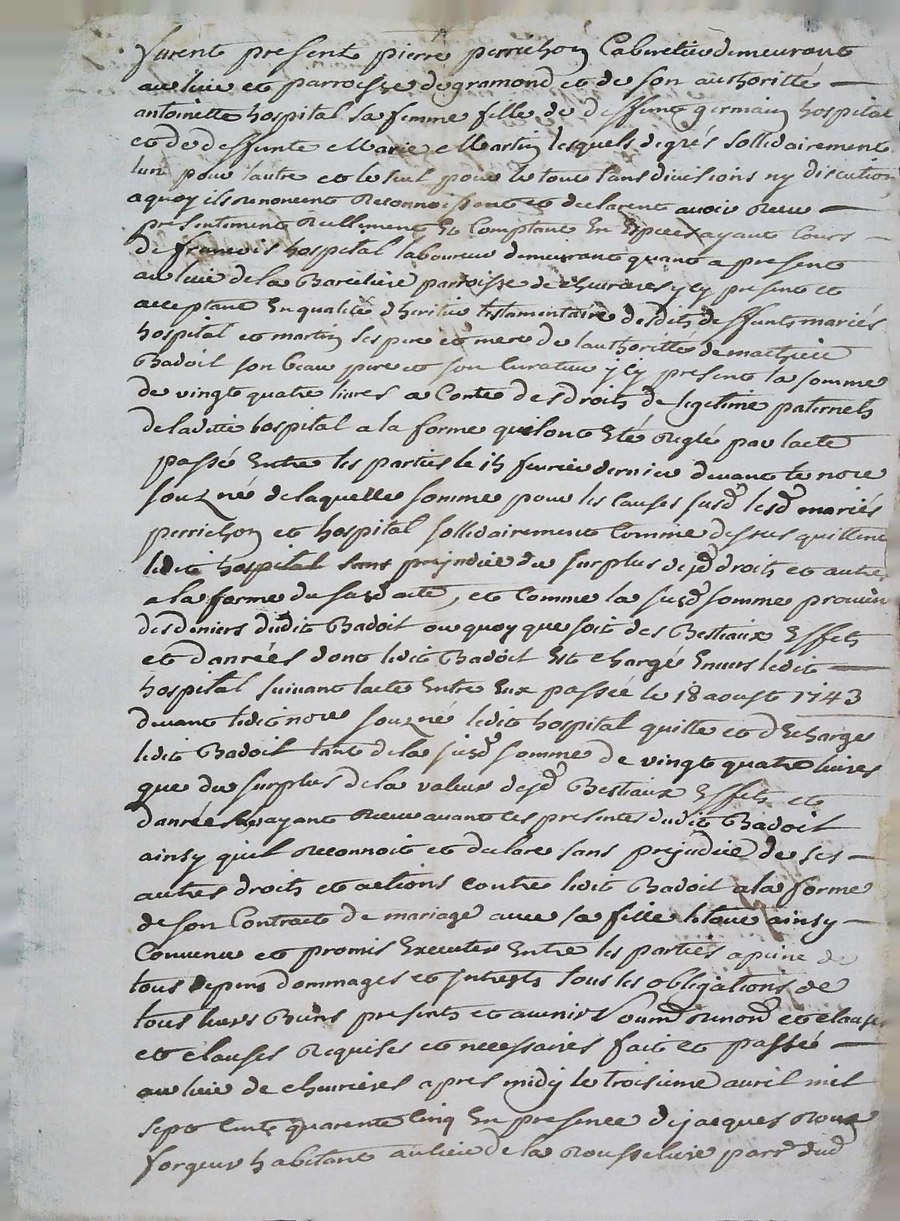 furent present pierre perrichon Cabaretier demeurant
au lieu et parroisse de gramond et de son authoritté
antoinette hospital sa femme fille de deffunt germain hospital
et de deffunte Marie Martin lesquels degrés sollidairement
lun pour lautre et le seul pour le tout sans divisions ny discution
a quoy ils renoncent reconnoissent et declarent avoir receu
presentement reellement Et Comptant En Espece ayant Cours
de francois hospital laboureur demeurant quant a present
au lieu de la parroisse de cheurieres icy present et
acceptant En qualité dheritier testamentaire desdits deffunts mariés
hospital et martin ses pere et mere de lauthoritté de mathieu
Badoil son beau pere et son Curateur icy present la somme
de vingt quatre livres a Conte des droits de legitime paternels
de laditte hospital a la forme quils ont Eté Reglé par lacte
passé Entre les parties le 15 fevrier dernier devant le nore
souzné de laquelle somme pour les Causes susd lesd mariés
perrichon et hospital sollidairement Comme dessus quittent
ledit hospital sans prejudice du surplus desd droits et autres
a la forme du susd acte, et Comme la susd somme provien
des deniers dudit Badoil ou quoy que soit des Bestiaux Effets
et danrées dont ledit Badoil Est chargé Envers ledit
hospital suivant lacte Entre Eux passée le 18 aoust 1743
devant ledit nore souzné ledit hospital quitte et decharge
ledit Badoil tant de la susd somme de vingt quatre livres
que du surplus de la valeur desd Bestiaux Effets et
danrées ayant receu avant ces presentes dudit Badoil
ainsy quil reconnoit et declare sans prejudice de ses
autres droits et actions contre ledit Badoil a la forme
de son Contract de mariage avec sa fille le tout ainsy
Convenu et promis Executer Entre les parties a peine de
tous depens dommages et interests sous les obligations de
tous leurs Biens presents et avenir soum renon et clauses
et clauses requises et necessaires fait et passé
au lieu de cheurières apres midy le troisieme avril mil
sept Cents quarente Cinq En presence de jacques Roux
forgeur habitant au lieu de la Rousseliere parr dud